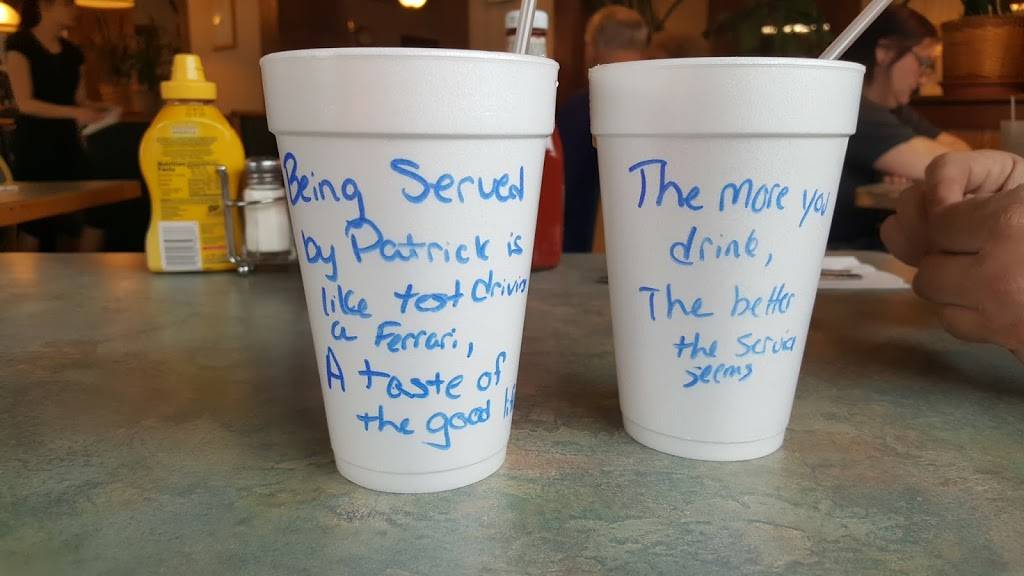 Being Served
by Patrick is
like test drivin
a Ferrari,
A taste of
the good life
The more you
drink,
The better
the Service
seems